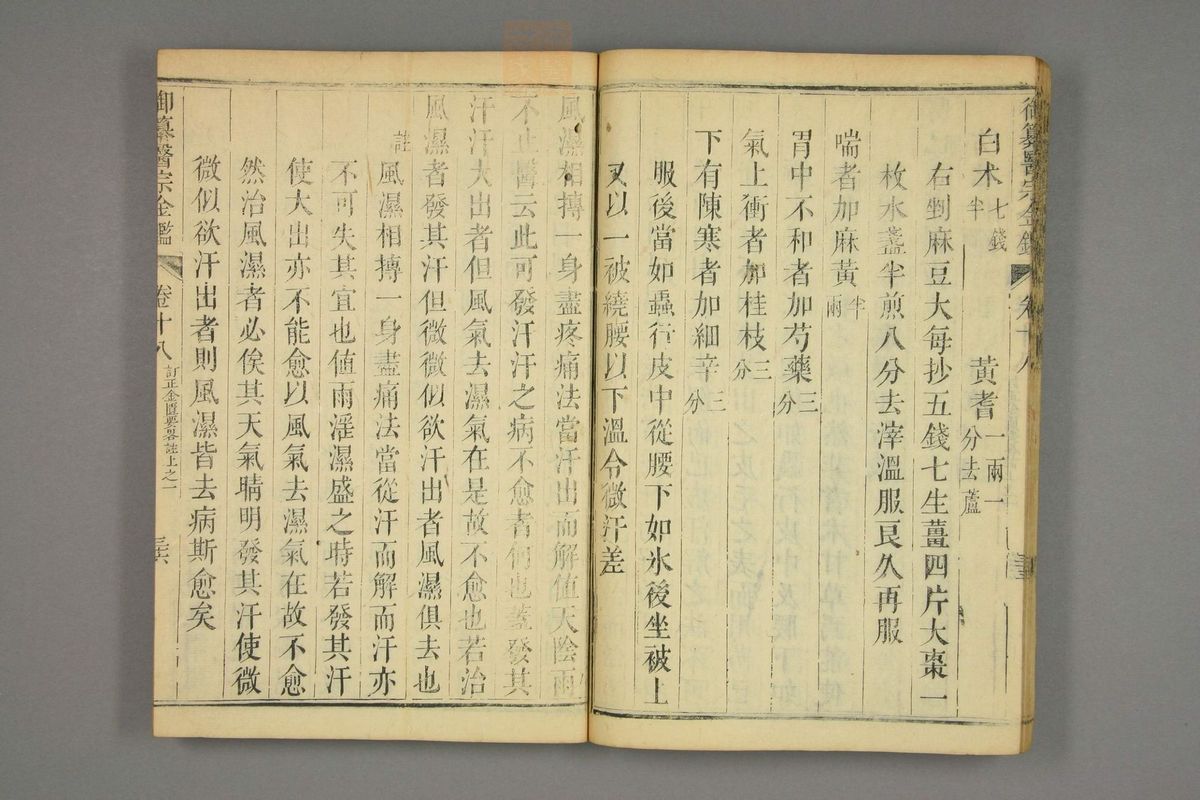 御纂醫宗金鑑 卷十八
白术七錢半 黃耆一兩一分去蘆
右剉麻豆大每抄五錢七生薑四片大棗一
枚水盞半煎八分去滓溫服良久再服
喘者加麻黃半兩
胃中不和者加芍藥三分
氣上衝者加桂枝三分
下有陳寒者加細辛三分
服後當如蟲行皮中從腰下如氷後坐被上
又以一被繞腰以下溫令微汗差
風濕相摶一身盡疼痛法當汗出而解值天陰雨
不止醫云此可發汗汗之病不愈者何也蓋發其
汗汗大出者但風氣去濕氣在是故不愈也若治
風濕者發其汗但微微似欲汗出者風濕俱去也
註風濕相摶一身盡痛法當從汗而解而汗亦
不可失其宜也値雨淫濕盛之時若發其汗
使大出亦不能愈以風氣去濕氣在故不愈
然治風濕者必俟其天氣晴明發其汗使微
微似欲汗出者則風濕皆去病斯愈矣
御纂醫宗金鑑 卷十八 訂正金匱要畧註上之一